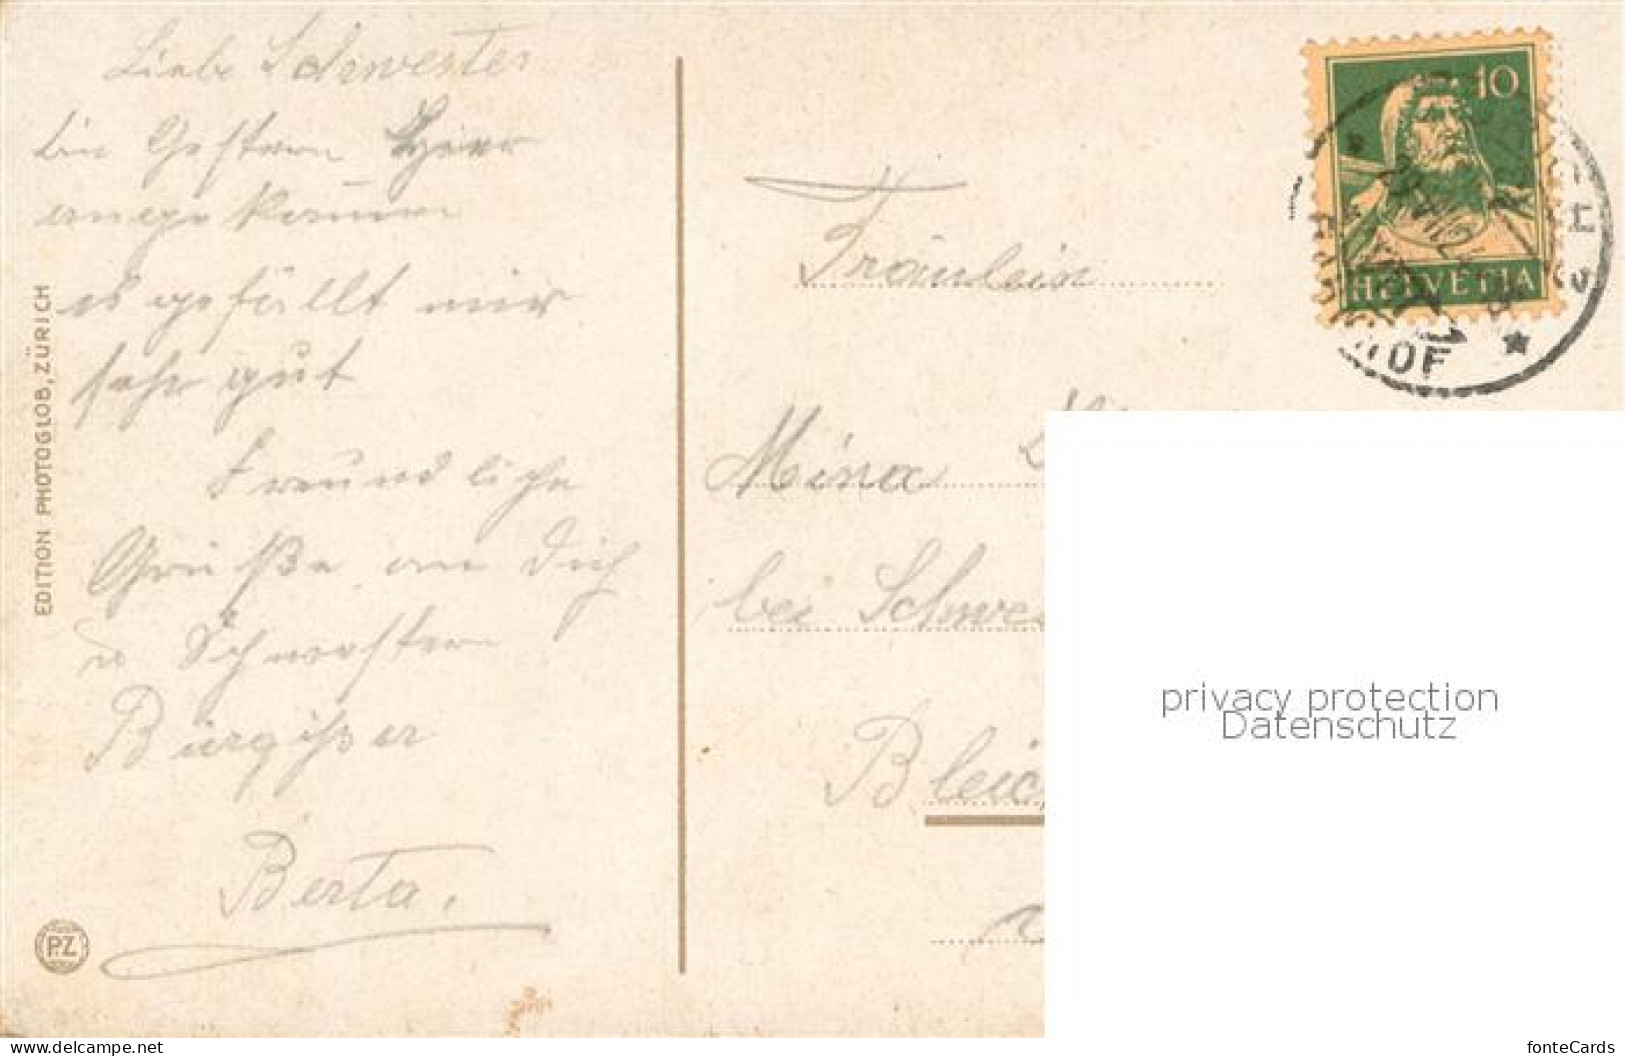 Liebe Schwester
bin Gestern Hier
angekommen
es gefällt mir
sehr gut
Freundliche
Grüße an Dich
u Schwestern
Bürgißer
Berta.
EDITION PHOTOGLOB, ZÜRICH
P.Z.
Fräulein
Mina
bei Schwe
Bleic
10
HELVETIA
HOF
privacy protection
Datenschutz
www.delcampe.net
fonteCards